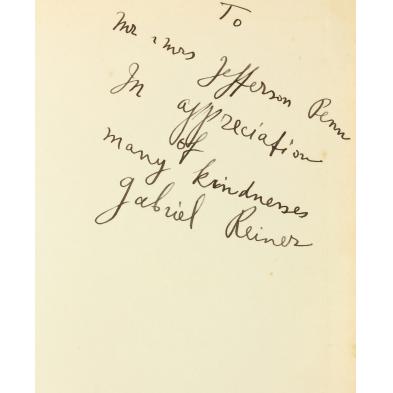 To
Mr & Mrs Jefferson Penn
In appreciation
of
many kindnesses
Gabriel Reiner